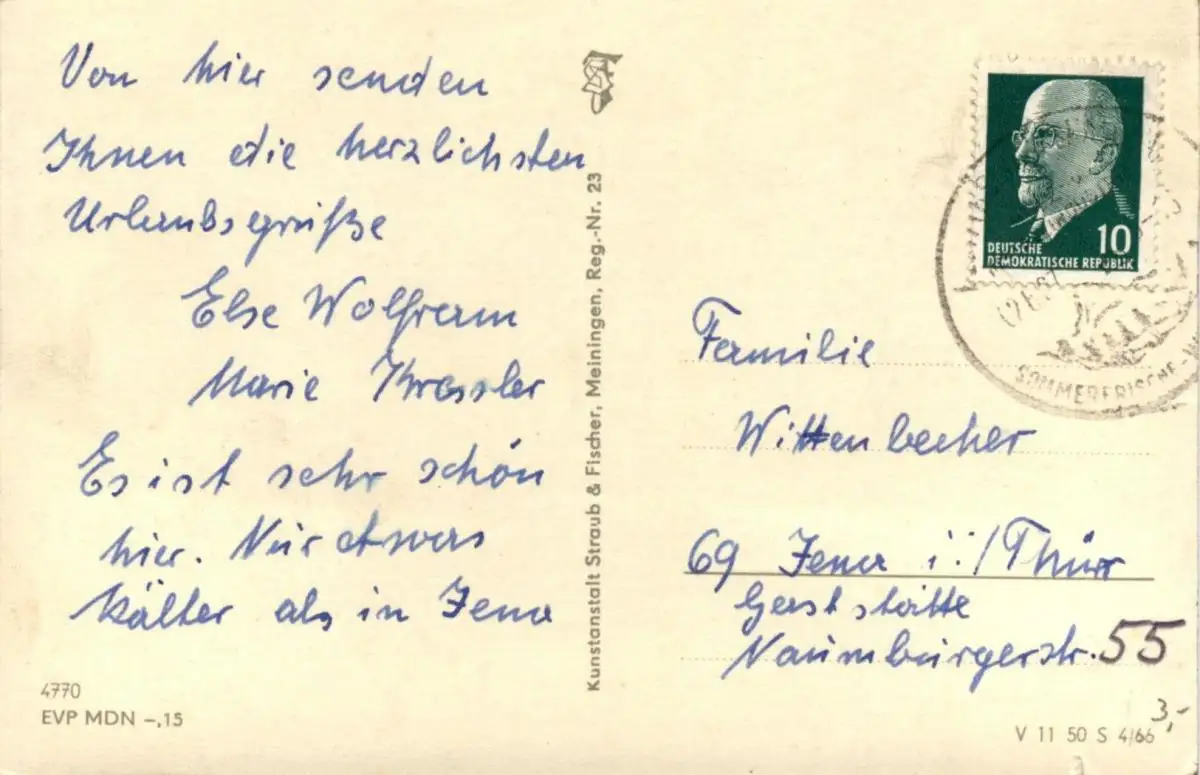 Von hier senden
Ihnen die herzlichsten
Urlaubsgrüße
Else Wolfram
Marie Kressler
Es ist sehr schön
hier. Nur etwas
kälter als in Jena
4770
EVP MDN –,15
Kunstanstalt Straub & Fischer, Meiningen, Reg.-Nr. 23
10
DEUTSCHE
DEMOKRATISCHE REPUBLIK
SOMMERFRISCHE
Familie
Wittenbecher
69 Jena i./Thür
Gaststätte
Naumburgerstr. 55
3,-
V 11 50 S 4/66